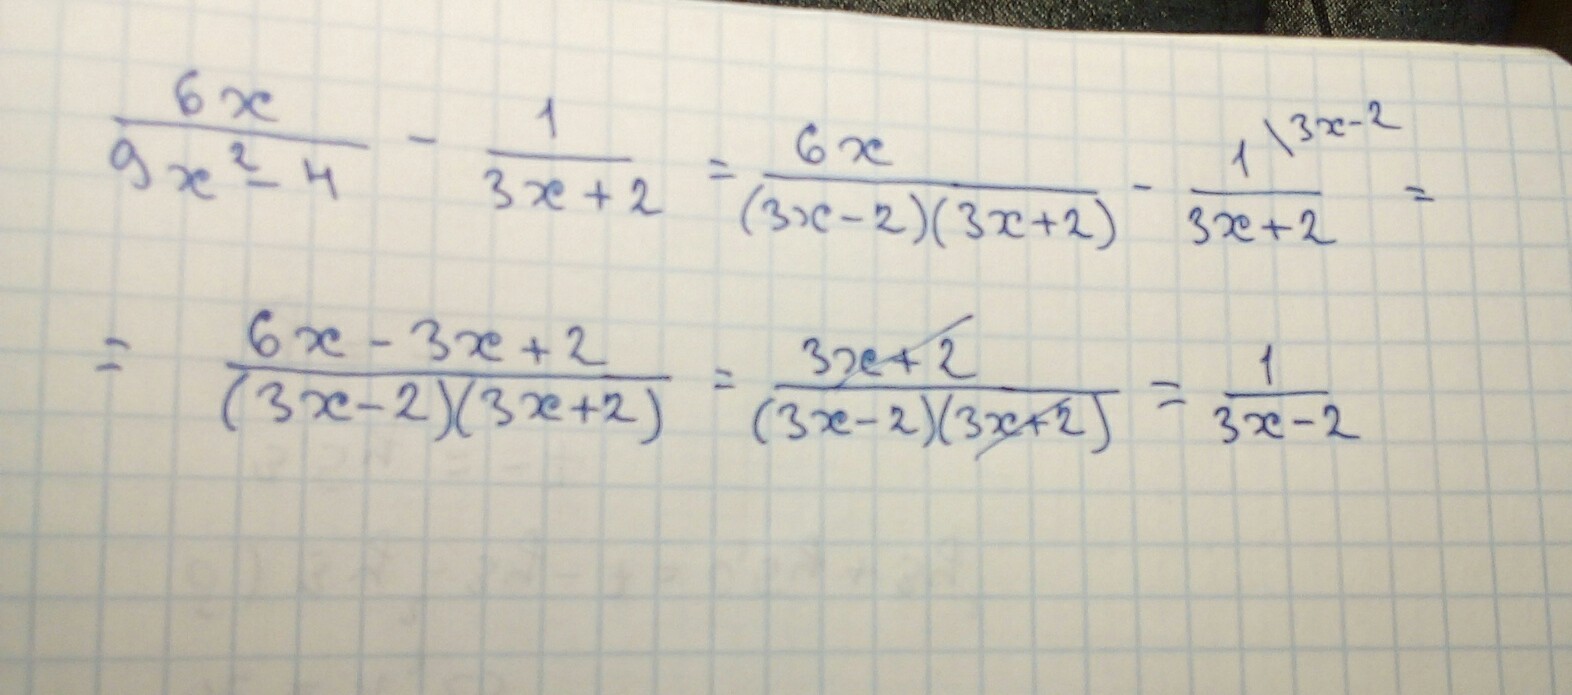 6x/(9x² - 4) - 1/(3x + 2) = 6x/((3x - 2)(3x + 2)) - 1\3x-2/(3x + 2) =
= (6x - 3x + 2)/((3x - 2)(3x + 2)) = (3x + 2)/((3x - 2)(3x + 2)) = 1/(3x - 2)